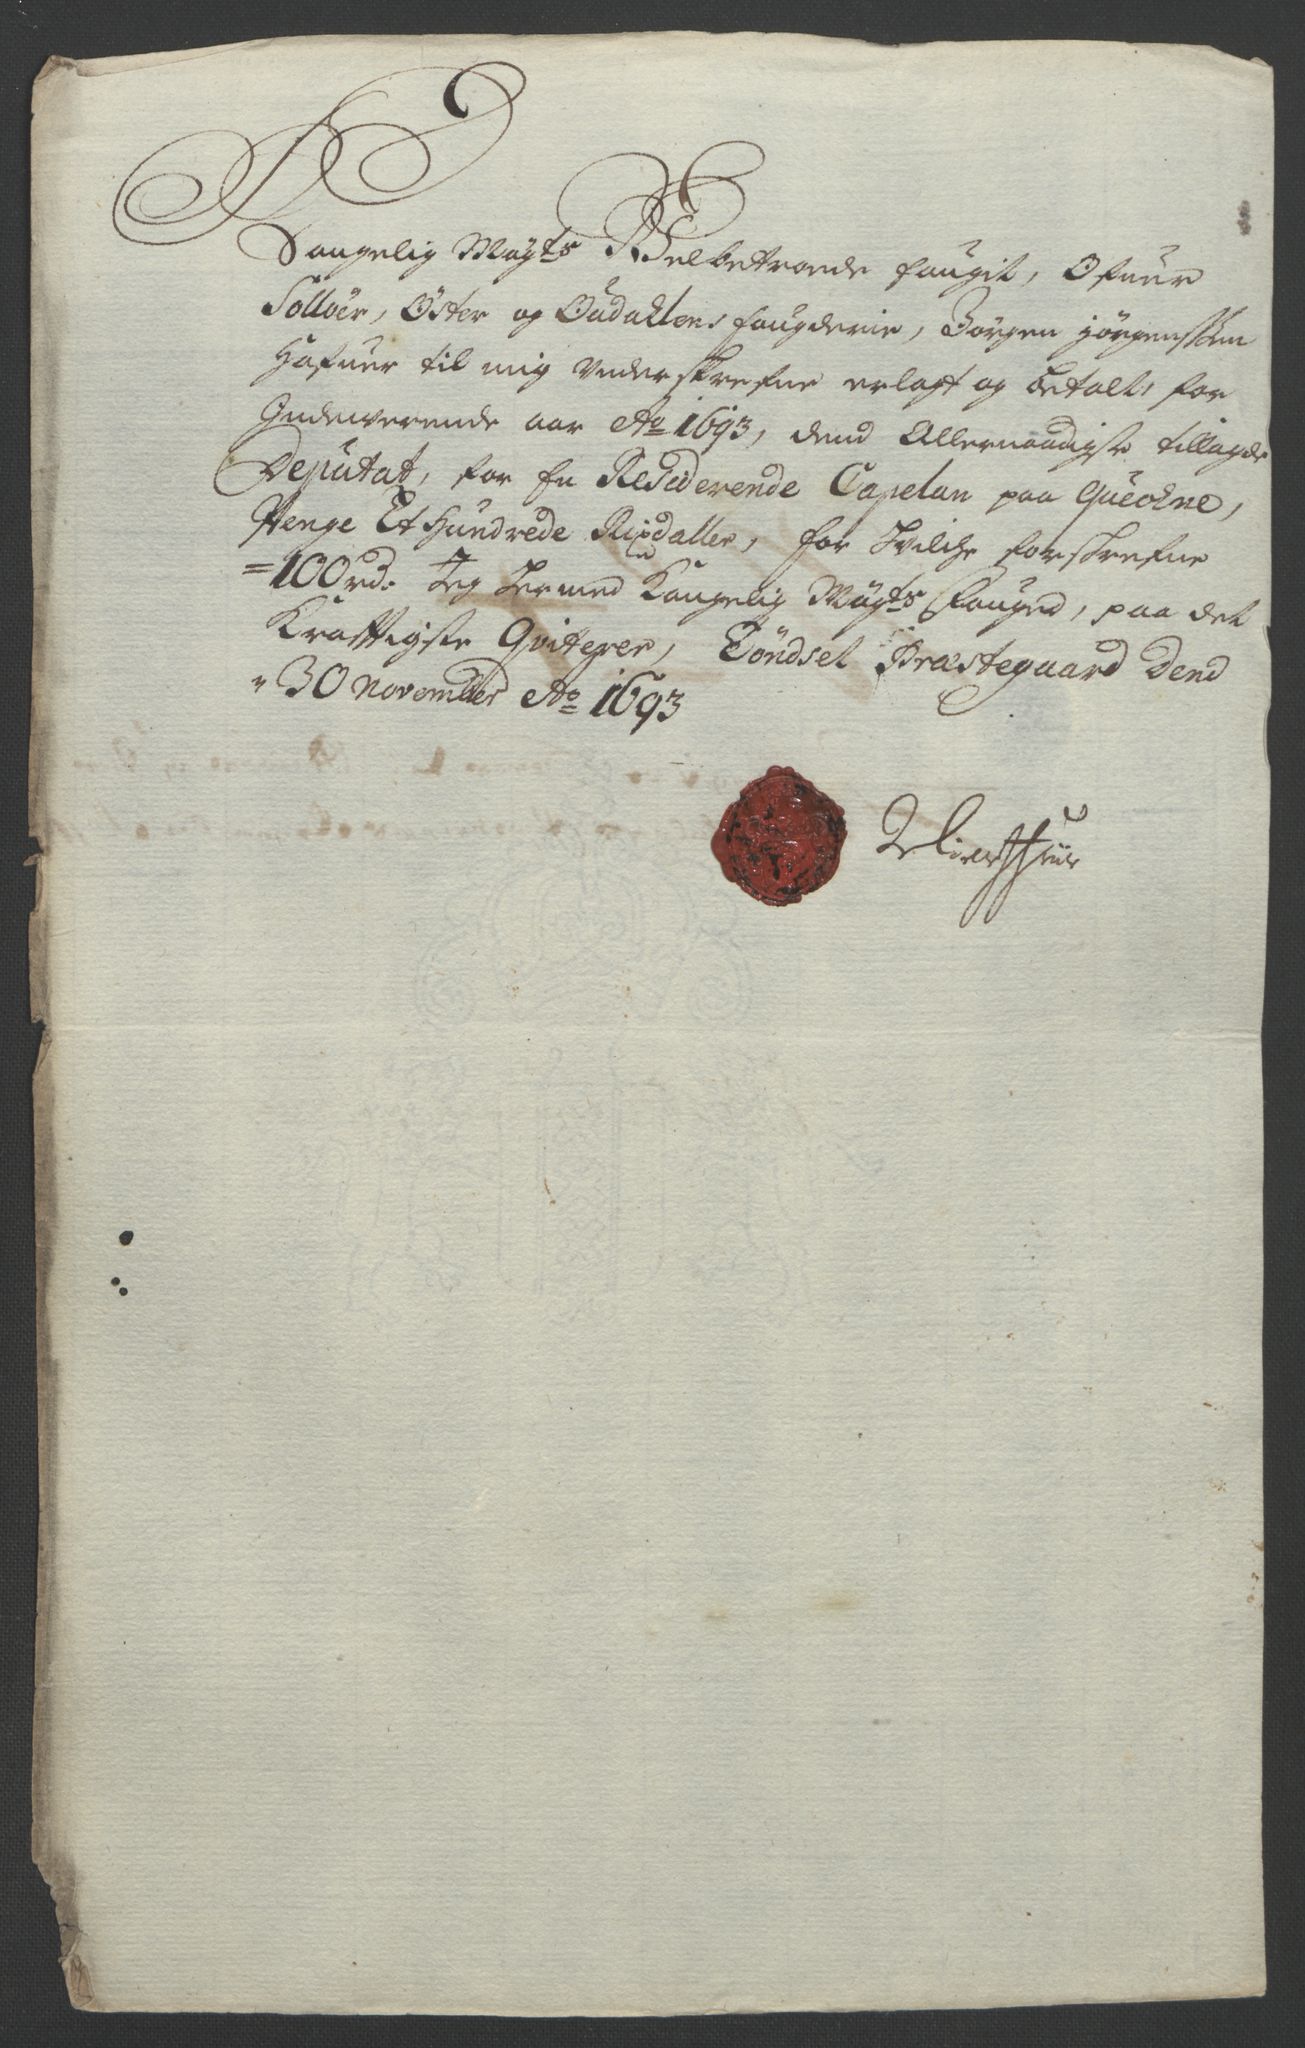 Kongelig Mayts Welbetroede fougit, Ofuer
Solloer, Öster og Oudahlens fougderie, Jörgen Jörgenssen
Hafuer til mig underskrefne erlagt og betalt, for
Indewerende aar Ao 1693, dend Allernaadigst tillagde
Deputat, for en Residerende Capelan paa Quechne,
Penge Et Hundrede Rixdaller, for hvilche forskrefne
=100 rd. Jeg hermed Kongelig Mayts Fouged, paa det
Krafftigste Qviterer, Töndset Præstegaard Dend
30 November Ao 1693